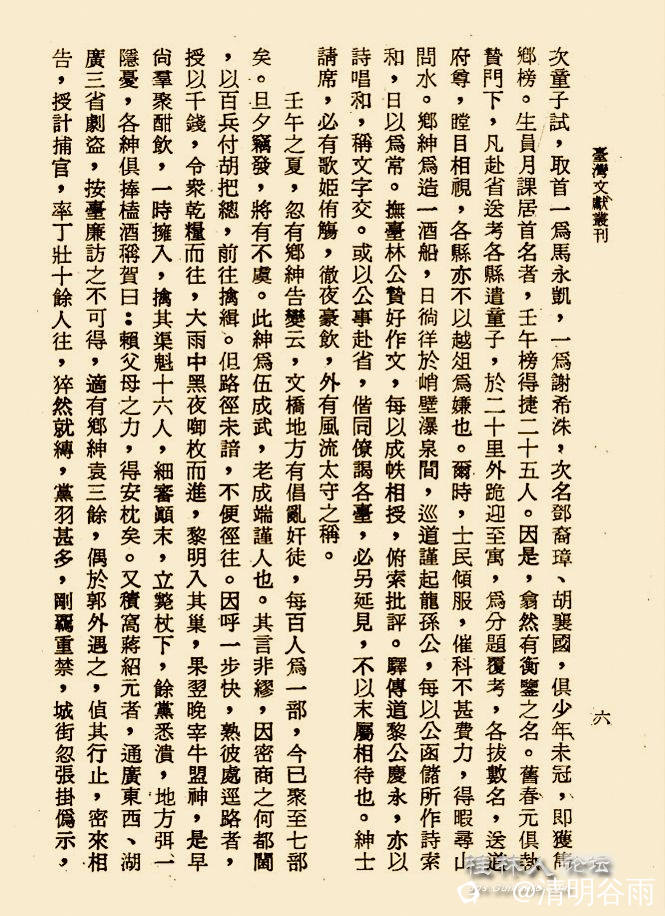 臺灣文獻叢刊
六
次童子試，取首一為馬永凱，一為謝希洙，次名鄧裔璋、胡襄國，俱少年未冠，即獲雋
鄉榜。生員月課居首名者，壬午榜得捷二十五人。因是，翕然有衡鑒之名。舊春元俱執
贄門下，凡赴省送考各縣遣童子，於二十里外跪迎至寓，為分題覆考，各拔數名，送道
府尊，瞠目相視，各縣亦不以越俎為嫌也。爾時，士民傾服，催科不甚費力，得暇尋山
問水。鄉紳為造一酒船，日徜徉於峭壁瀑泉間，巡道謹起龍孫公，每以公函儲所作詩索
和，日以為常。撫臺林公贄好作文，每以成帙相授，俯索批評。驛傳道黎公慶永，亦以
詩唱和，稱文字交。或以公事赴省，偕同僚謁各臺，必另延見，不以末屬相待也。紳士
請席，必有歌姬侑觴，徹夜豪飲，外有風流太守之稱。
壬午之夏，忽有鄉紳告變云，文橋地方有倡亂奸徒，每百人為一部，今已聚至七部
矣。旦夕竊發，將有不虞。此紳為伍成武，老成端謹人也。其言非繆，因密商之何都閫
，以百兵付胡把總，前往擒緝。但路徑未諳，不便徑往。因呼一步快，熟彼處逕路者，
授以千錢，令衆乾糧而往，大雨中黑夜啣枚而進，黎明入其巢，果翌晚宰牛盟神，是早
尙羣聚酣飲，一時擁入，擒其渠魁十六人，細審顚末，立斃杖下，餘黨悉潰，地方弭一
隱憂，各紳俱捧榼酒稱賀曰：賴父母之力，得安枕矣。又積窩蔣紹元者，通廣東西、湖
廣三省劇盜，按臺廉訪之不可得，適有鄉紳袁三餘，偶於郭外遇之，偵其行止，密來相
告，授計捕官，率丁壯十餘人往，猝然就縛，黨羽甚多，剛羈重禁，城街忽張掛僞示，
桂林人论坛
@清明谷雨